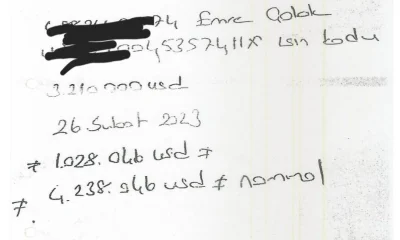 74 Emre Çolak
004535741HX isin kodu
3.210 000 usd
26 Şubat 2023
≠ 1.028. 046 usd ≠
≠ 4.238. 046 usd ≠ nominal